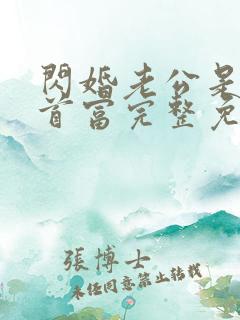 閃婚老公是
首富完整免
張博士
未经同意禁止转载